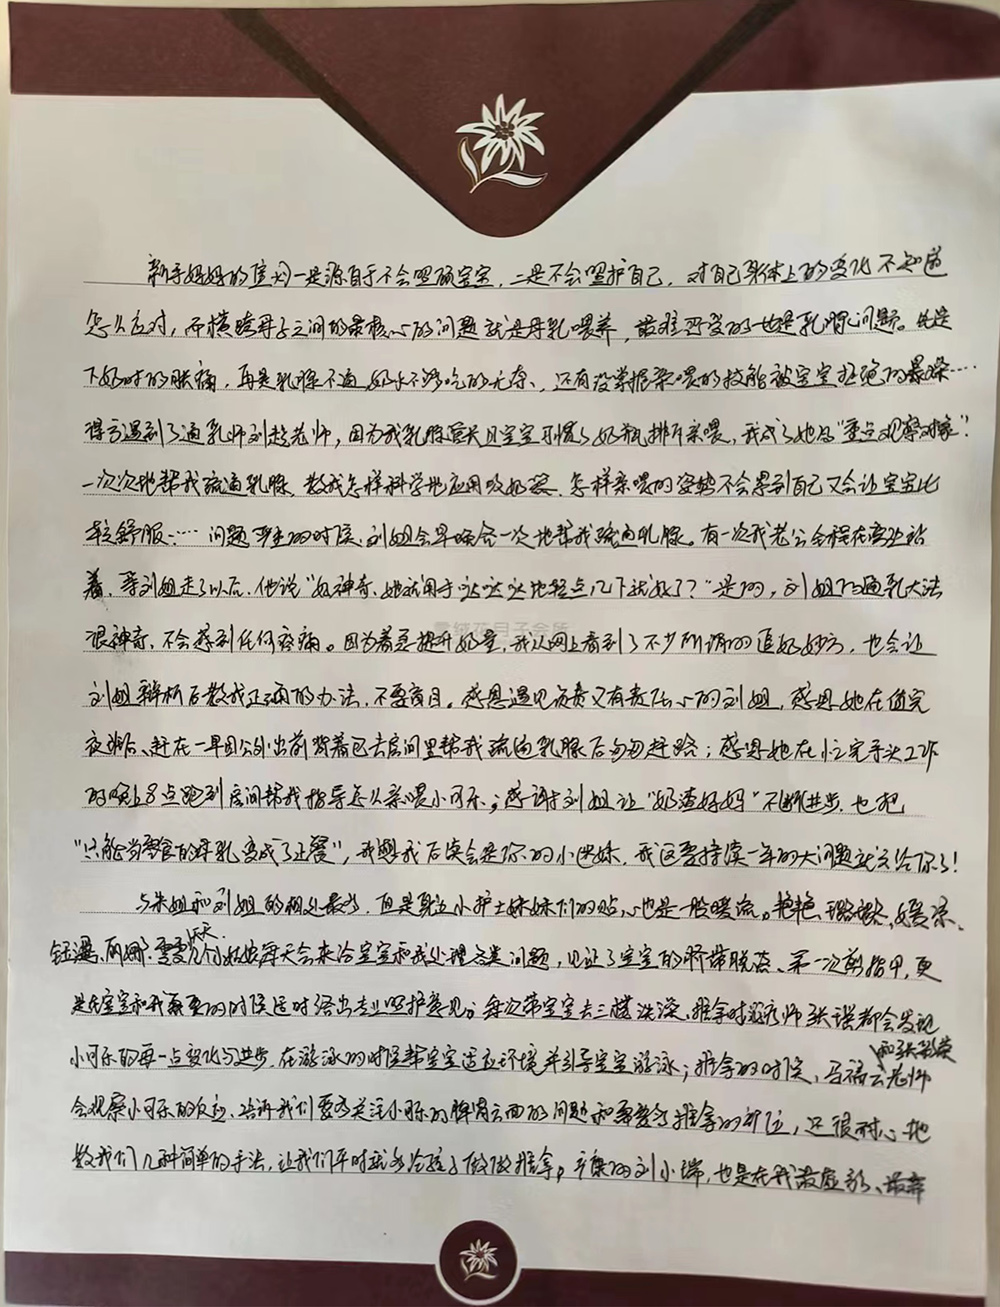 新手妈妈的焦灼一是源自于不会照顾宝宝，二是不会照护自己，对自己身体上的变化不知道
怎么应对，而横跨母子之间的最核心的问题就是母乳喂养，最难忍受的也是乳腺问题。先是
下奶时的胀痛，再是乳腺不通奶水不够吃的无奈、还有没掌握亲喂的技能被宝宝拒绝的……
得亏遇到了通乳师刘超老师，因为我乳腺管长且宝宝习惯了奶瓶排斥亲喂，我成了她的“重点观察对象”！
一次次地帮我疏通乳腺，教我怎样科学地应用吸奶器、怎样亲喂的姿势不会累到自己又会让宝宝比
较舒服…… 问题严重的时候、刘姐会早晚各一次地帮我疏通乳腺。有一次我老公全程在旁边站
着，等刘姐走了以后，他说“好神奇、她就用手哒哒哒地轻点几下就好了？”是的，刘姐的通乳大法
很神奇，不会感到任何疼痛。因为着急提升奶量，我从网上看到了不少所谓的追奶妙方，也会让
刘姐辩析后教我正确的办法，不要盲目。感恩遇见负责又有责任心的刘姐，感恩她在值完
夜班后、赶在一早因公外出前背着包去房间里帮我疏通乳腺后匆匆赶路；感恩她在忙完手头工作
的晚上8点跑到房间帮我指导怎么亲喂小可乐；感谢刘姐让“奶渣好妈”不断进步，也把
“只能当零食的母乳变成了正餐”，我想我后续会是你的小迷妹，我这要持续一年的大问题就交给你了！
与朱姐和刘姐的相处最多，但是身边小护士妹妹们的贴心也是一股暖流。艳艳、璐璐、媛添、
钰潞、丽娜、雯雯、天天几个小姑娘每天会来给宝宝和我处理各类问题，见证了宝宝的脐带脱落、第一次剪指甲，更
是在宝宝和我需要的时候适时给出专业照护意见。每次带宝宝去三楼洗澡、推拿时游泳师张瑶都会发现
小可乐的每一点变化与进步，在游泳的时候帮宝宝适应环境并引导宝宝游泳；推拿的时候，马福云和张彩英老师
会观察小可乐的反应、告诉我们要多关注小可乐的脾胃方面的问题和需要多推拿的部位，还很耐心地
教我们几种简单的手法，让我们平时就多给孩子做做推拿。产康的刘小瑞，也是在我最虚弱、最需